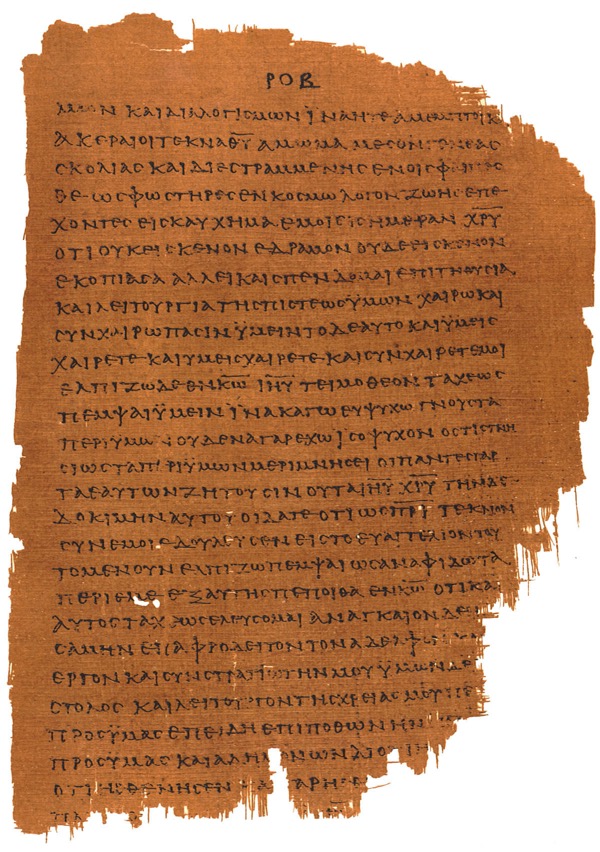 ΡΟΒ
ΚΑΙ ΔΙΑΛΟΓΙΣΜΩΝ ΪΝΑ ΑΜΕΜΠΤΟΙ
ΑΚΕΡΑΙΟΙ ΤΕΚΝΑ Θ̅Υ̅ ΑΜΩΜΑ ΜΕΣΟΝ ΓΕΝΕΑΣ
ΣΚΟΛΙΑΣ ΚΑΙ ΔΙΕΣΤΡΑΜΜΕΝΗΣ ΕΝ ΟΙΣ
ΘΕ ΩΣ ΦΩΣΤΗΡΕΣ ΕΝ ΚΟΣΜΩ ΛΟΓΟΝ ΖΩΗΣ ΕΠΕ
ΧΟΝΤΕΣ ΕΙΣ ΚΑΥΧΗΜΑ ΕΜΟΙ ΕΙΣ ΗΜΕΡΑΝ Χ̅Ρ̅Υ̅
ΟΤΙ ΟΥΚ ΕΙΣ ΚΕΝΟΝ ΕΔΡΑΜΟΝ ΟΥΔΕ ΕΙΣ ΚΕΝΟΝ
ΕΚΟΠΙΑΣΑ ΑΛΛ ΕΙ ΚΑΙ ΣΠΕΝΔΟΜΑΙ ΕΠΙ ΤΗ ΘΥΣΙΑ
ΚΑΙ ΛΕΙΤΟΥΡΓΙΑ ΤΗΣ ΠΙΣΤΕΩΣ ΫΜΩΝ ΧΑΙΡΩ ΚΑΙ
ΣΥΝΧΑΙΡΩ ΠΑΣΙΝ ΫΜΕΙΝ ΤΟ ΔΕ ΑΥΤΟ ΚΑΙ ΫΜΕΙΣ
ΧΑΙΡΕΤΕ ΚΑΙ ΥΜΕΙΣ ΧΑΙΡΕΤΕ ΚΑΙ ΣΥΝΧΑΙΡΕΤΕ ΜΟΙ
ΕΛΠΙΖΩ ΔΕ ΕΝ Κ̅Ω̅ Ι̅Η̅Υ̅ ΤΕΙΜΟΘΕΟΝ ΤΑΧΕΩΣ
ΠΕΜΨΑΙ ΫΜΕΙΝ ΪΝΑ ΚΑΓΩ ΕΥΨΥΧΩ ΓΝΟΥΣ ΤΑ
ΠΕΡΙ ΫΜΩΝ ΟΥΔΕΝΑ ΓΑΡ ΕΧΩ ΙΣΟΨΥΧΟΝ ΟΣΤΙΣ ΓΝΗ
ΣΙΩΣ ΤΑ ΠΕΡΙ ΫΜΩΝ ΜΕΡΙΜΝΗΣΕΙ ΟΙ ΠΑΝΤΕΣ ΓΑΡ
ΤΑ ΕΑΥΤΩΝ ΖΗΤΟΥΣΙΝ ΟΥ ΤΑ Ι̅Η̅Υ̅ Χ̅Ρ̅Υ̅ ΤΗΝ ΔΕ
ΔΟΚΙΜΗΝ ΑΥΤΟΥ ΟΙΔΑΤΕ ΟΤΙ ΩΣ Π̅Ρ̅Ι̅ ΤΕΚΝΟΝ
ΣΥΝ ΕΜΟΙ ΕΔΟΥΛΕΥΣΕΝ ΕΙΣ ΤΟ ΕΥΑΓΓΕΛΙΟΝ ΤΟΥ
ΤΟ ΜΕΝ ΟΥΝ ΕΛΠΙΖΩ ΠΕΜΨΑΙ ΩΣ ΑΝ ΑΦΙΔΩ ΤΑ
ΠΕΡΙ ΕΜΕ ΕΞΑΥΤΗΣ ΠΕΠΟΙΘΑ ΕΝ Κ̅Ω̅ ΟΤΙ ΚΑΙ
ΑΥΤΟΣ ΤΑΧΕΩΣ ΕΛΕΥΣΟΜΑΙ ΑΝΑΓΚΑΙΟΝ ΔΕ
ΣΑΜΗΝ ΕΠΑΦΡΟΔΕΙΤΟΝ ΤΟΝ ΑΔΕΛΦΟΝ
ΕΡΓΟΝ ΚΑΙ ΣΥΝΣΤΡΑΤΙΩΤΗΝ ΜΟΥ ΫΜΩΝ ΔΕ
ΣΤΟΛΟΣ ΚΑΙ ΛΕΙΤΟΥΡΓΟΝ ΤΗΣ ΧΡΕΙΑΣ ΜΟΥ
ΠΡΟΣ ΫΜΑΣ ΕΠΕΙΔΗ ΕΠΙΠΟΘΩΝ ΗΝ
ΠΡΟΣ ΫΜΑΣ ΚΑΙ ΑΔΗΜΟΝΩΝ ΔΙΟΤΙ
ΟΤΙ ΗΣΘΕΝΗΣΕΝ ΓΑΡ